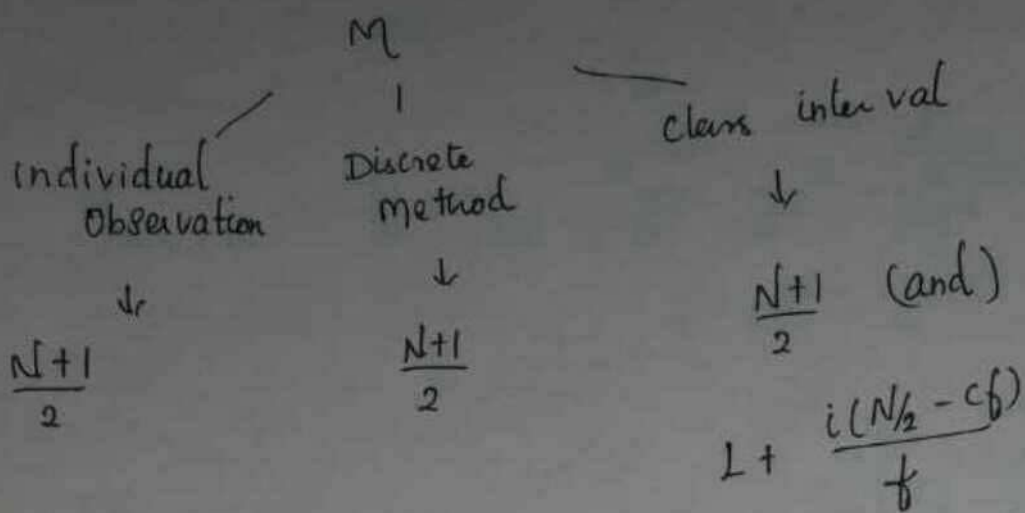 M
individual Observation
Discrete method
class interval
N+1
2
N+1
2
N+1 (and)
2
L + i(N/2 - cf)
f